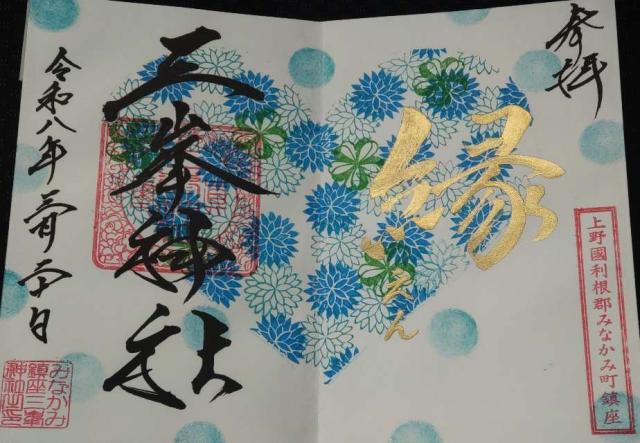 奉拝
上野國利根郡みなかみ町鎮座
縁
えん
三峯神社
令和八年三月二十日
みなかみ
鎮座三峯
神社之印